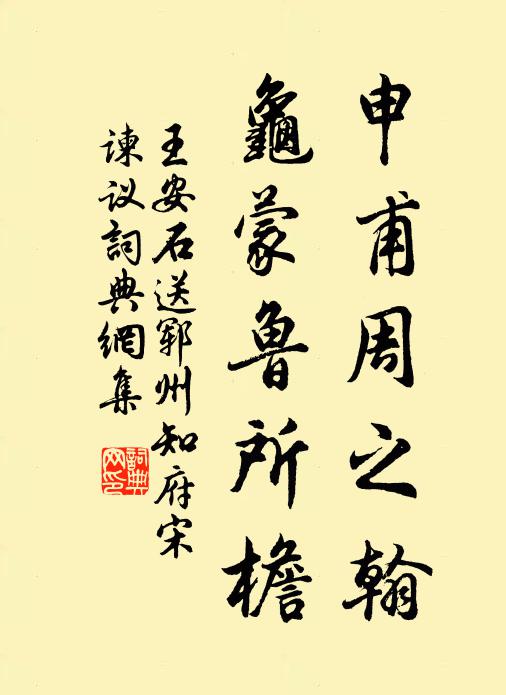 申甫周之翰
龜蒙魯所檐
王安石送鄆州知府宋
諫议詞典網集
詞典网印